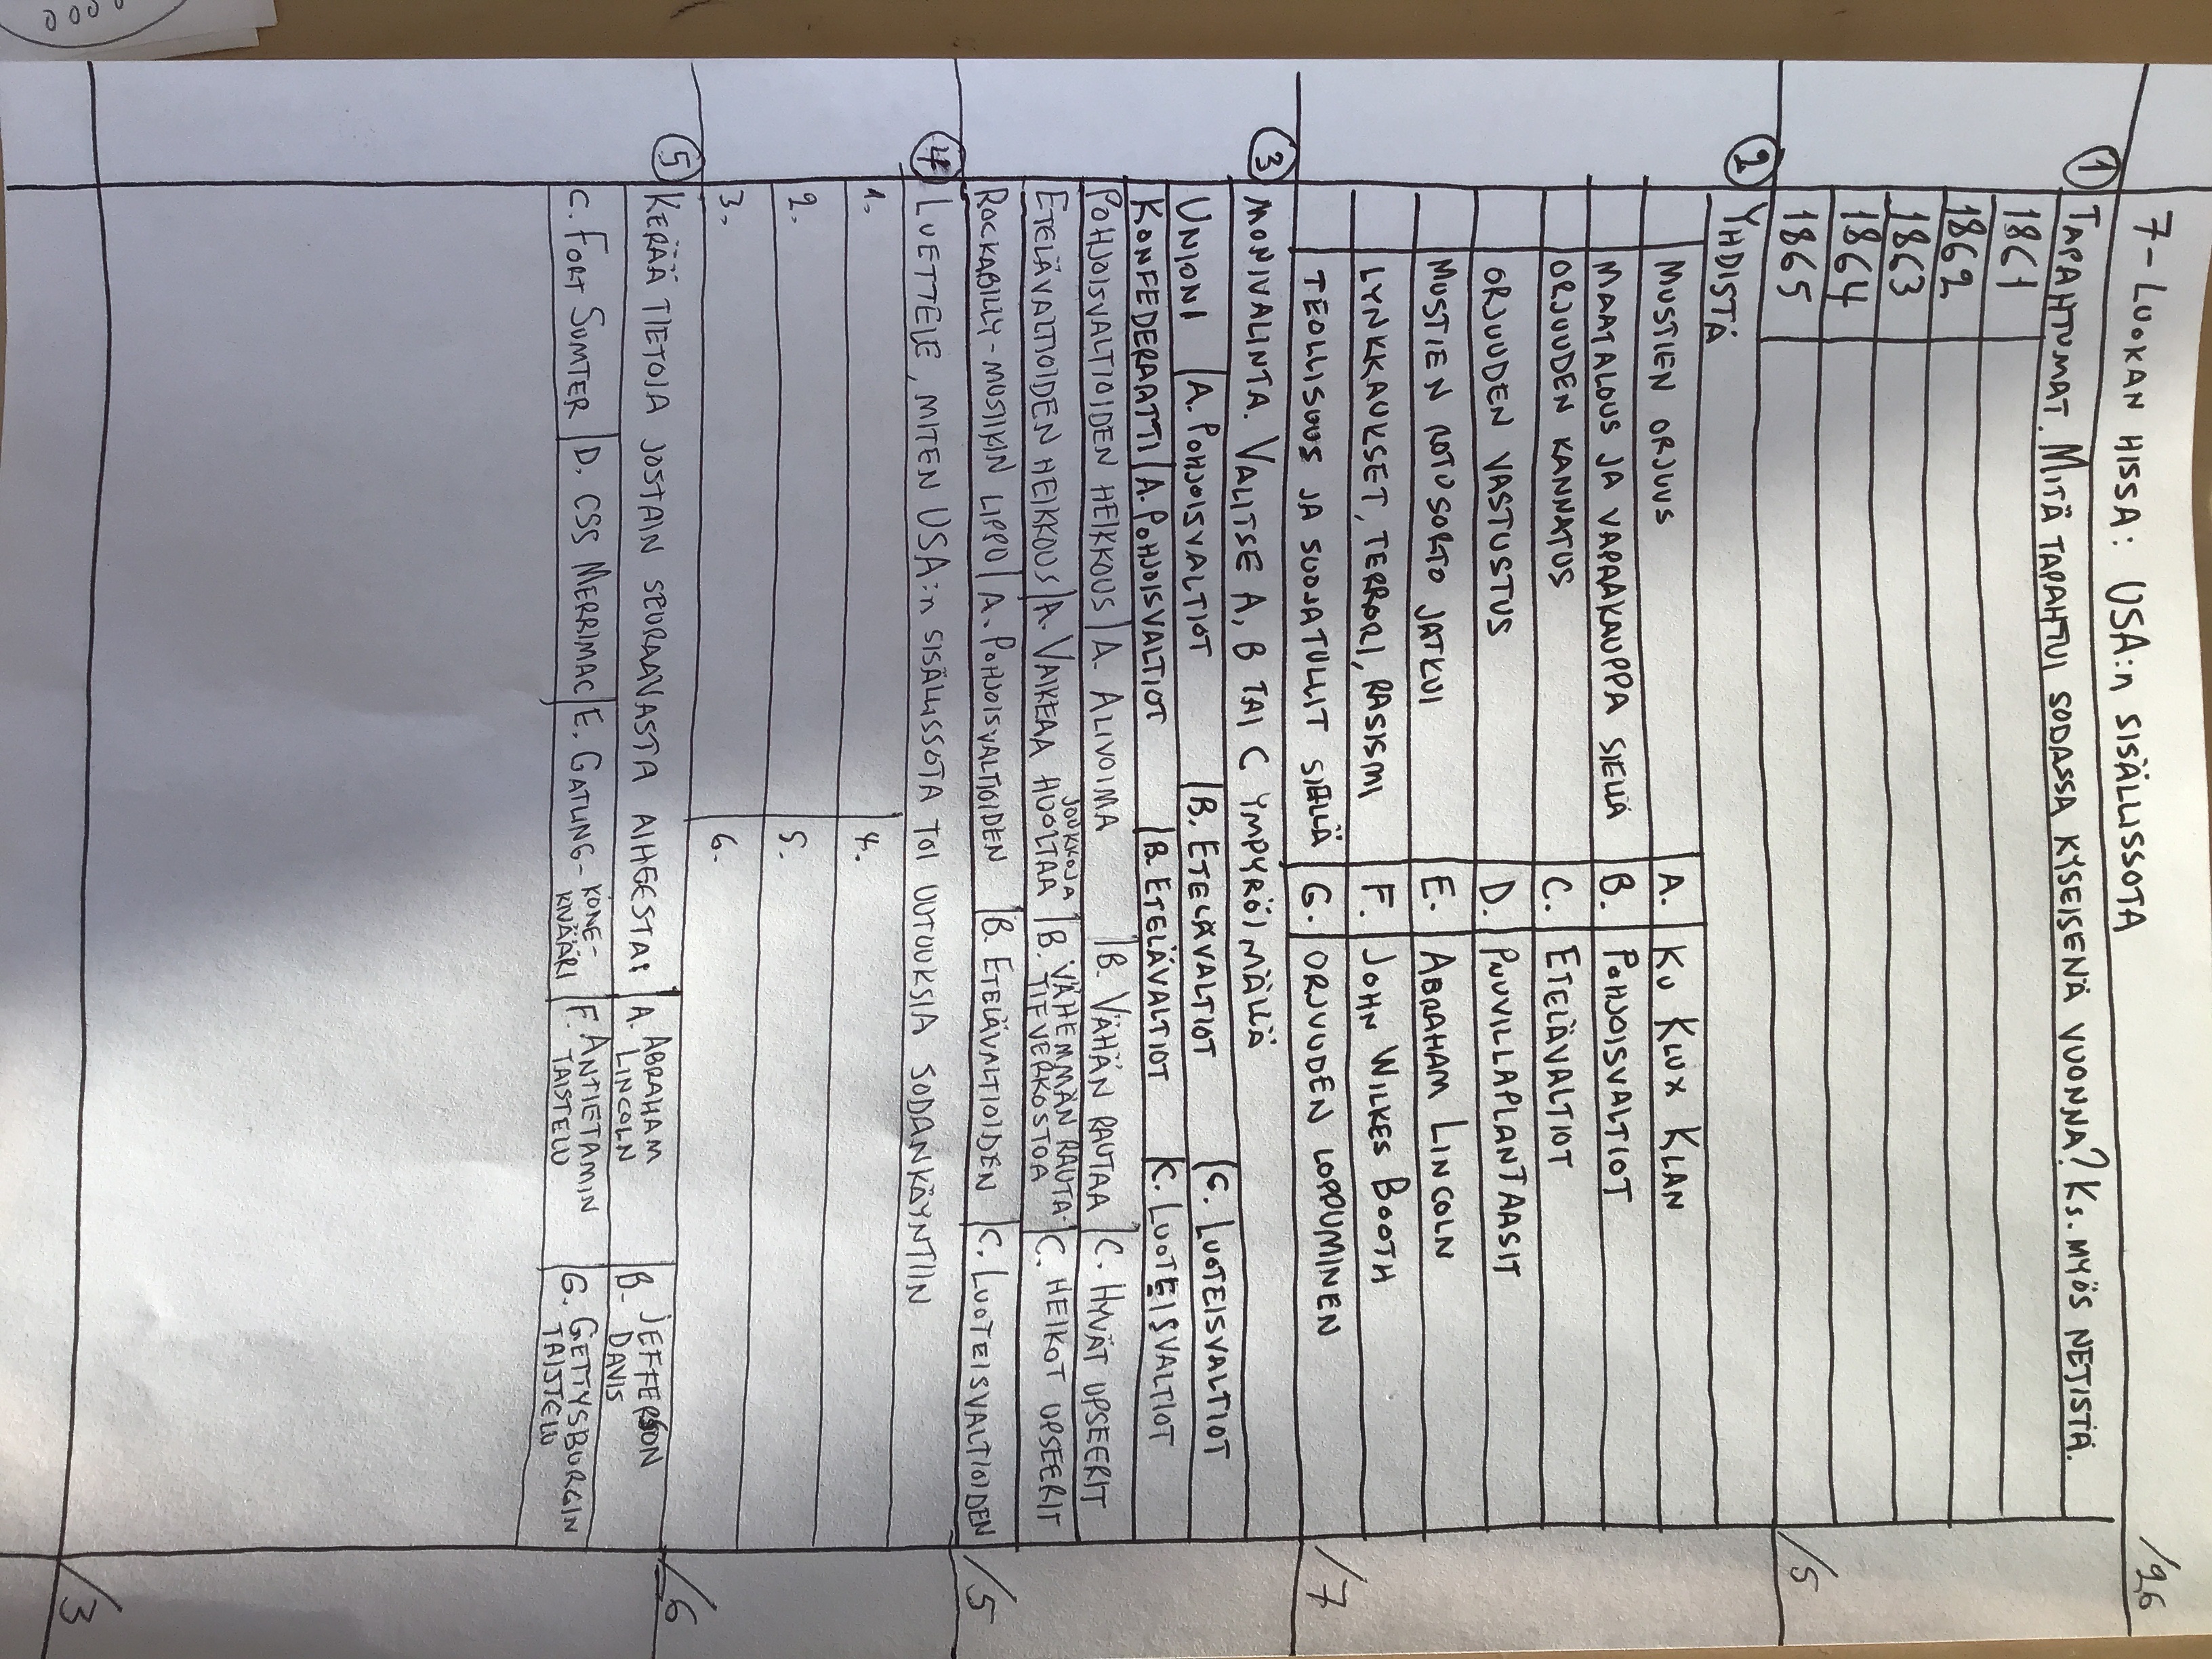 7-LUOKAN HISSA: USA:n SISÄLLISSOTA /26
① TAPAHTUMAT. MITÄ TAPAHTUI SODASSA KYSEISENÄ VUONNA? KS. MYÖS NETISTÄ.
1861
1862
1863
1864
1865
/5
② YHDISTÄ
MUSTIEN ORJUUS A. KU KLUX KLAN
MAATALOUS JA VAPAAKAUPPA SIELLÄ B. POHJOISVALTIOT
ORJUUDEN KANNATUS C. ETELÄVALTIOT
ORJUUDEN VASTUSTUS D. PUUVILLAPLANTAASIT
MUSTIEN ROTUSORTO JATKUI E. ABRAHAM LINCOLN
LYNKKAUKSET, TERRORI, RASISMI F. JOHN WILKES BOOTH
TEOLLISUUS JA SUOJATULLIT SIELLÄ G. ORJUUDEN LOPPUMINEN
/7
③ MONIVALINTA. VALITSE A, B TAI C YMPYRÖIMÄLLÄ
UNIONI A. POHJOISVALTIOT B. ETELÄVALTIOT C. LUOTEISVALTIOT
KONFEDERAATTI A. POHJOISVALTIOT B. ETELÄVALTIOT C. LUOTEISVALTIOT
POHJOISVALTIOIDEN HEIKKOUS A. ALIVOIMA B. VÄHÄN RAUTAA C. HYVÄT UPSEERIT
ETELÄVALTIOIDEN HEIKKOUS A. VAIKEAA HUOLTAA JOUKKOJA B. VÄHEMMÄN RAUTA-TIEVERKOSTOA C. HEIKOT UPSEERIT
ROCKABILLY-MUSIIKIN LIPPU A. POHJOISVALTIOIDEN B. ETELÄVALTIOIDEN C. LUOTEISVALTIOIDEN
/5
④ LUETTELE, MITEN USA:n SISÄLLISSOTA TOI UUTUUKSIA SODANKÄYNTIIN
1. 4.
2. 5.
3. 6.
/6
⑤ KERÄÄ TIETOJA JOSTAIN SEURAAVASTA AIHEESTA: A. ABRAHAM LINCOLN B. JEFFERSON DAVIS
C. FORT SUMTER D. CSS MERRIMAC E. GATLING-KONE-KIVÄÄRI F. ANTIETAMIN TAISTELU G. GETTYSBURGIN TAISTELU
/3